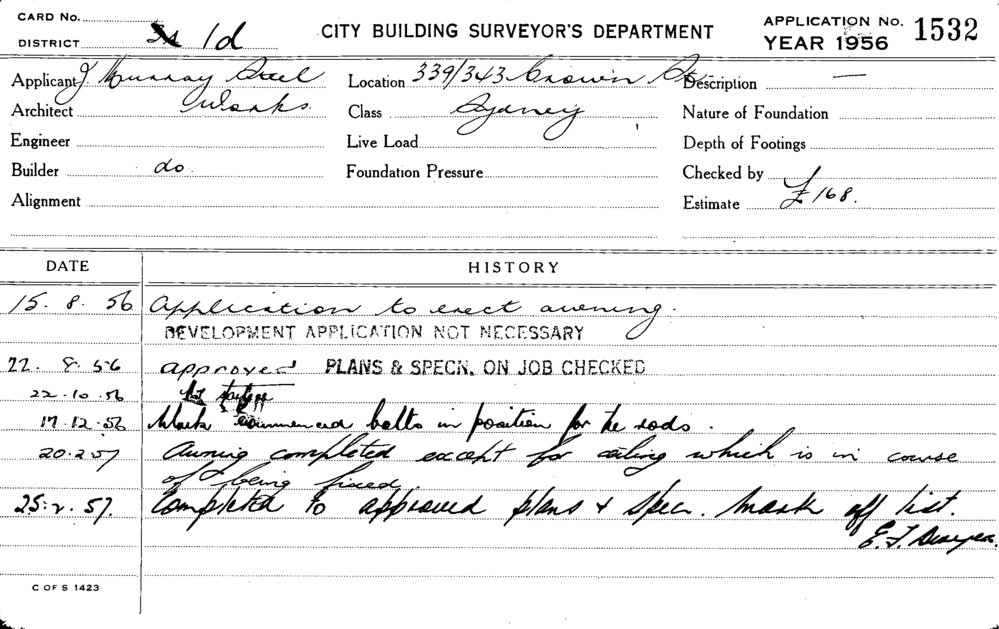 CARD No.
DISTRICT 1d
CITY BUILDING SURVEYOR'S DEPARTMENT
APPLICATION No. 1532
YEAR 1956
Applicant J Murray Steel
Works.
Location 339/343 Crown St
Sydney
Description —
Architect
Class
Nature of Foundation
Engineer
Live Load
Depth of Footings
Builder do.
Foundation Pressure
Checked by
Alignment
Estimate £168.
DATE
HISTORY
15. 8. 56 Application to erect awning.
DEVELOPMENT APPLICATION NOT NECESSARY
22. 8. 56 approved PLANS & SPECN. ON JOB CHECKED
22.10.56
17.12.56 Work commenced bolts in position for tie rods.
20.2.57 Awning completed except for ceiling which is in course
of being fixed
25.2.57. Completed to approved plans & specn. Mark off list.
E. F.
C OF S 1423